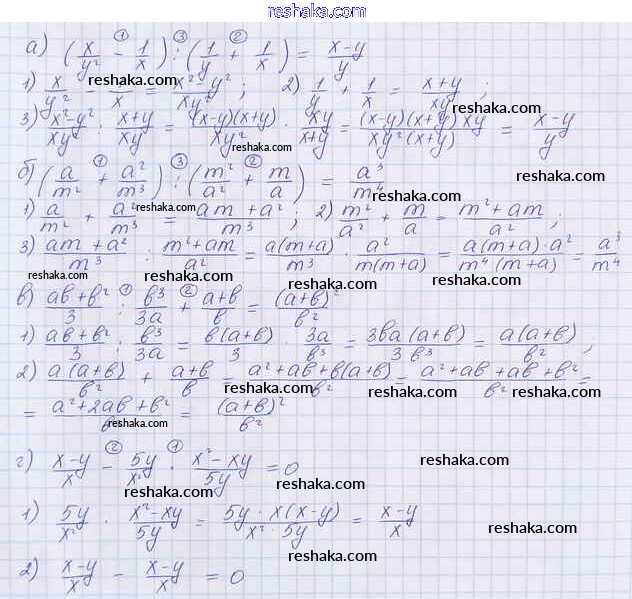 reshaka.com
а) (x/y² ① − 1/x) ③ : (1/y ② + 1/x) = (x−y)/y
1) x/y² − /x = (x²−y²)/(xy²) ; 2) 1/y + 1/x = (x+y)/(xy) ;
reshaka.com
reshaka.com
3) (x²−y²)/(xy²) : (x+y)/(xy) = ((x−y)(x+y))/(xy²) · (xy)/(x+y) = ((x−y)(x+y)xy)/(xy²(x+y)) = (x−y)/y
reshaka.com
reshaka.com
б) (a/m² ① + a²/m³) ③ : (m²/a² ② + m/a) = a³/m⁴
reshaka.com
1) a/m² + a²/m³ = (am+a²)/m³ ; 2) m²/a² + m/a = (m²+am)/a² ;
reshaka.com
reshaka.com
3) (am+a²)/m³ : (m²+am)/a² = (a(m+a))/m³ · a²/(m(m+a)) = (a(m+a)·a²)/(m⁴(m+a)) = a³/m⁴
reshaka.com reshaka.com reshaka.com
reshaka.com
в) (ab+b²)/3 ① : b³/3a ② + (a+b)/b = (a+b)²/b²
reshaka.com
1) (ab+b²)/3 : b³/3a = (b(a+b))/3 · 3a/b³ = (3ba(a+b))/(3b³) = (a(a+b))/b² ,
2) (a(a+b))/b² + (a+b)/b = (a²+ab+b(a+b))/b² = (a²+ab+ab+b²)/b² =
reshaka.com reshaka.com reshaka.com
= (a²+2ab+b²)/b = (a+b)²/b²
reshaka.com
г) (x−y)/x ② − 5y/x² ① · (x²−xy)/5y = 0
reshaka.com
reshaka.com
1) 5y/x² · (x²−xy)/5y = (5y·x(x−y))/(x²·5y) = (x−y)/x
reshaka.com
reshaka.com
2) (x−y)/x − (x−y)/x = 0